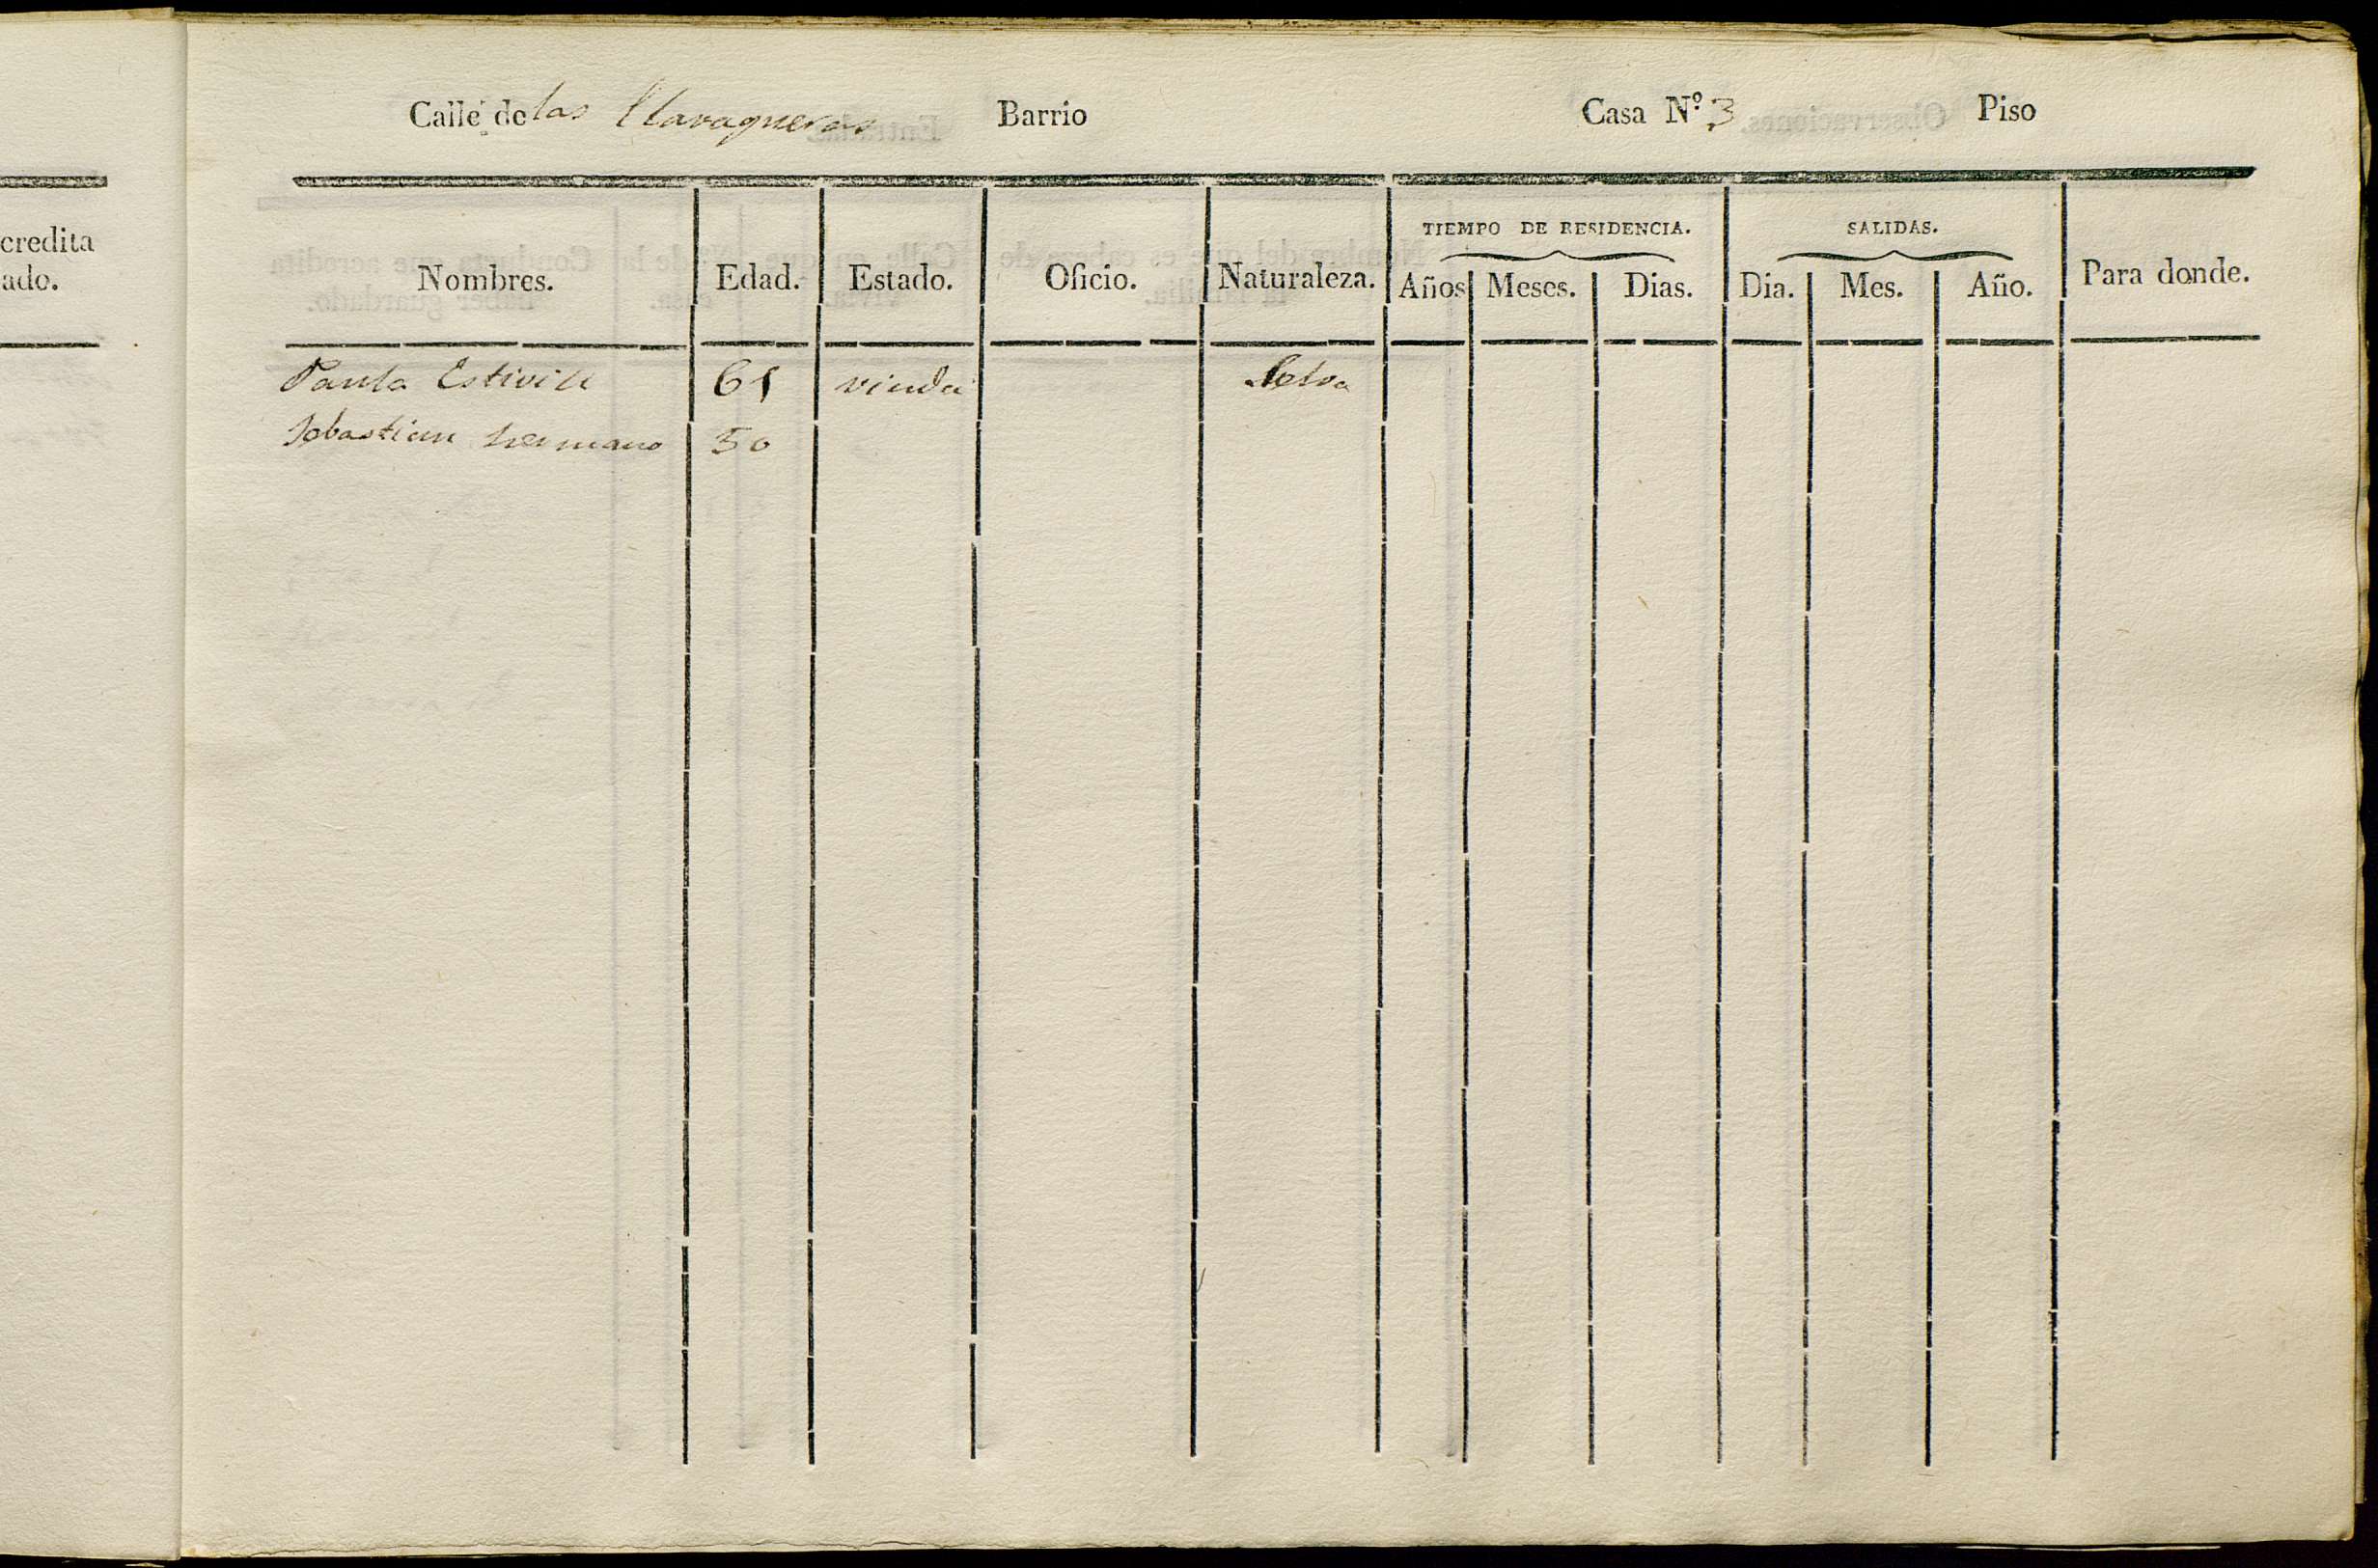 credita
ado.
Calle de las Llavaqueras Barrio Casa Nº 3 Piso
TIEMPO DE RESIDENCIA. SALIDAS.
Nombres. Edad. Estado. Oficio. Naturaleza. Años Meses. Dias. Dia. Mes. Año. Para donde.
Paula Estivill 61 viuda Selva
Sebastian hermano 50